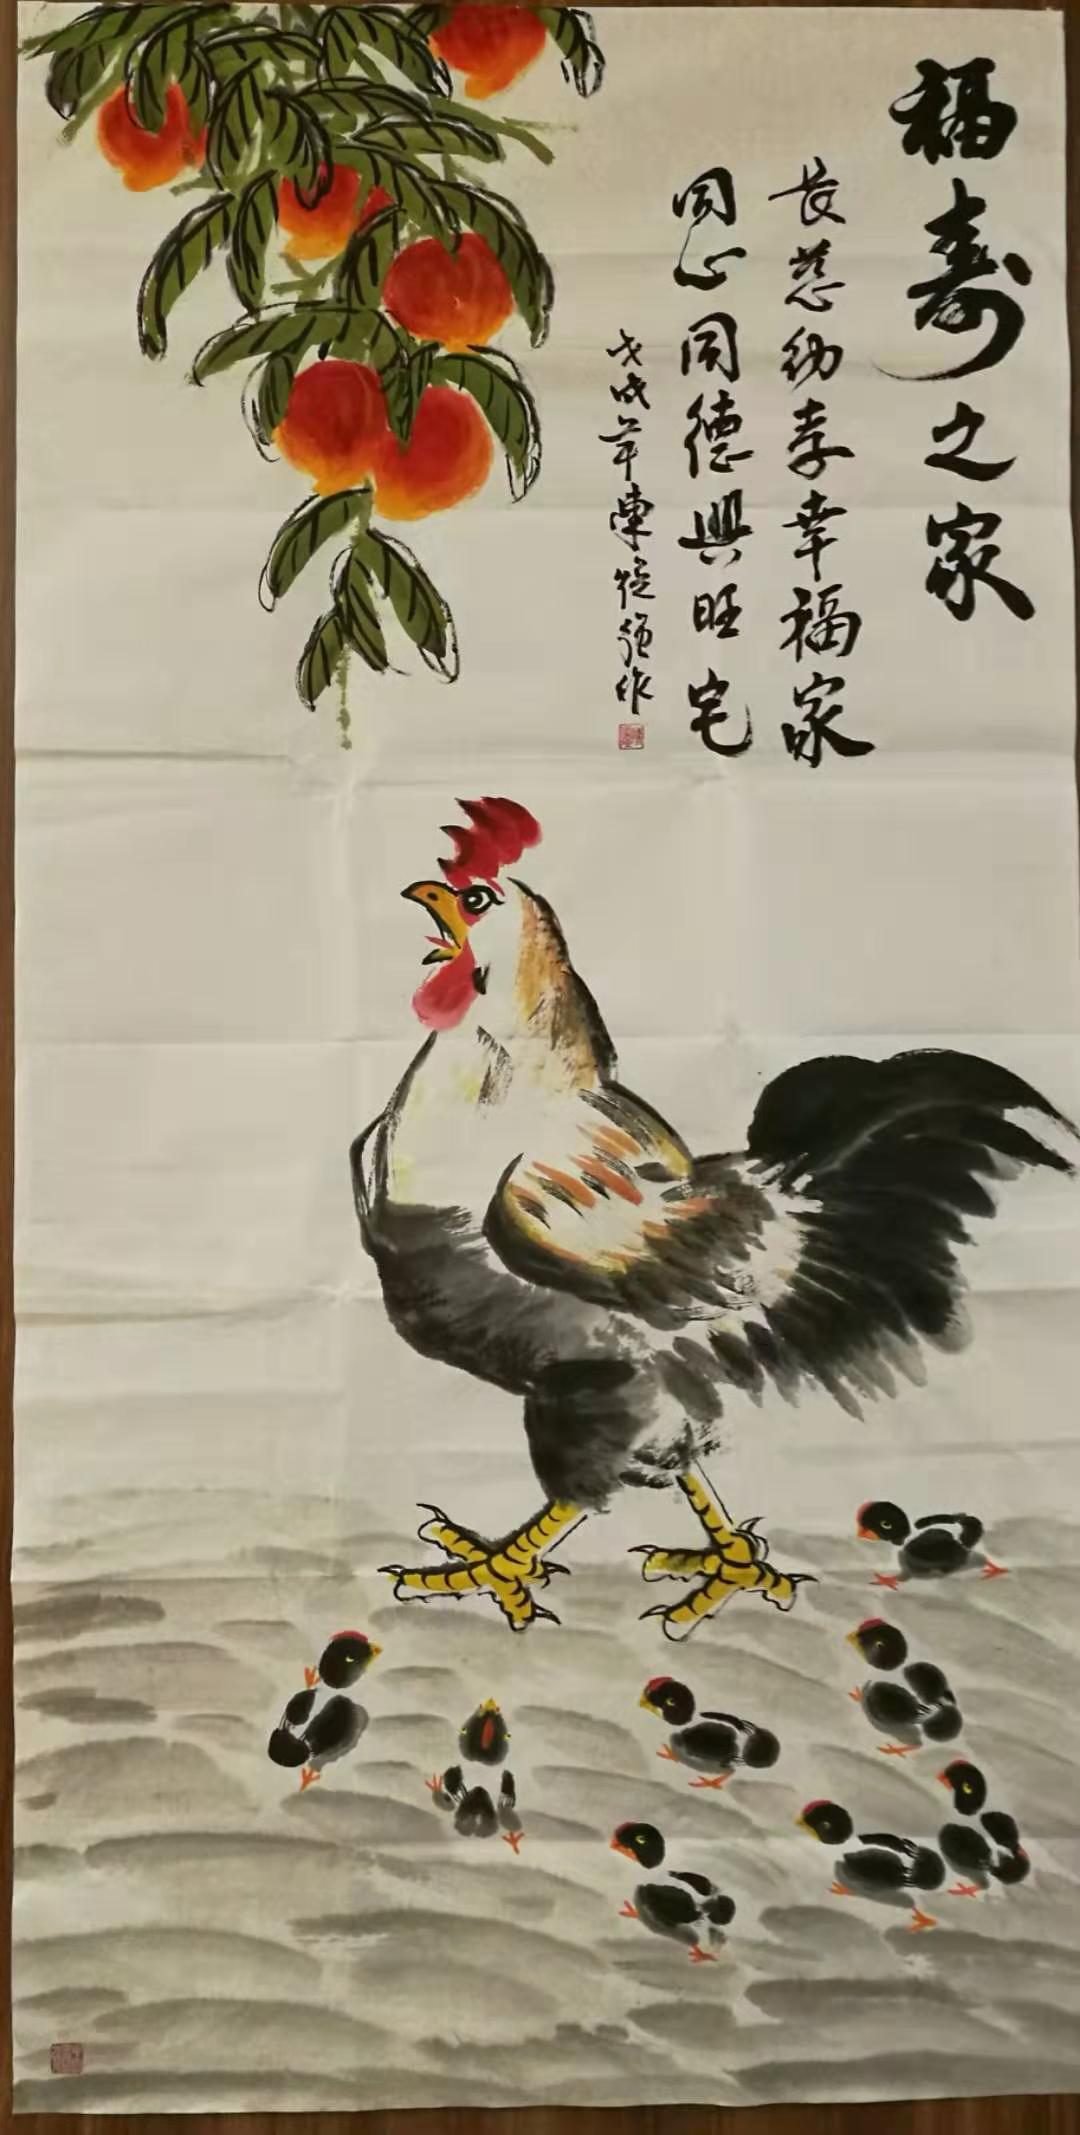 福寿之家
長慈幼孝幸福家
同心同德興旺宅
戊戌年陳從强作